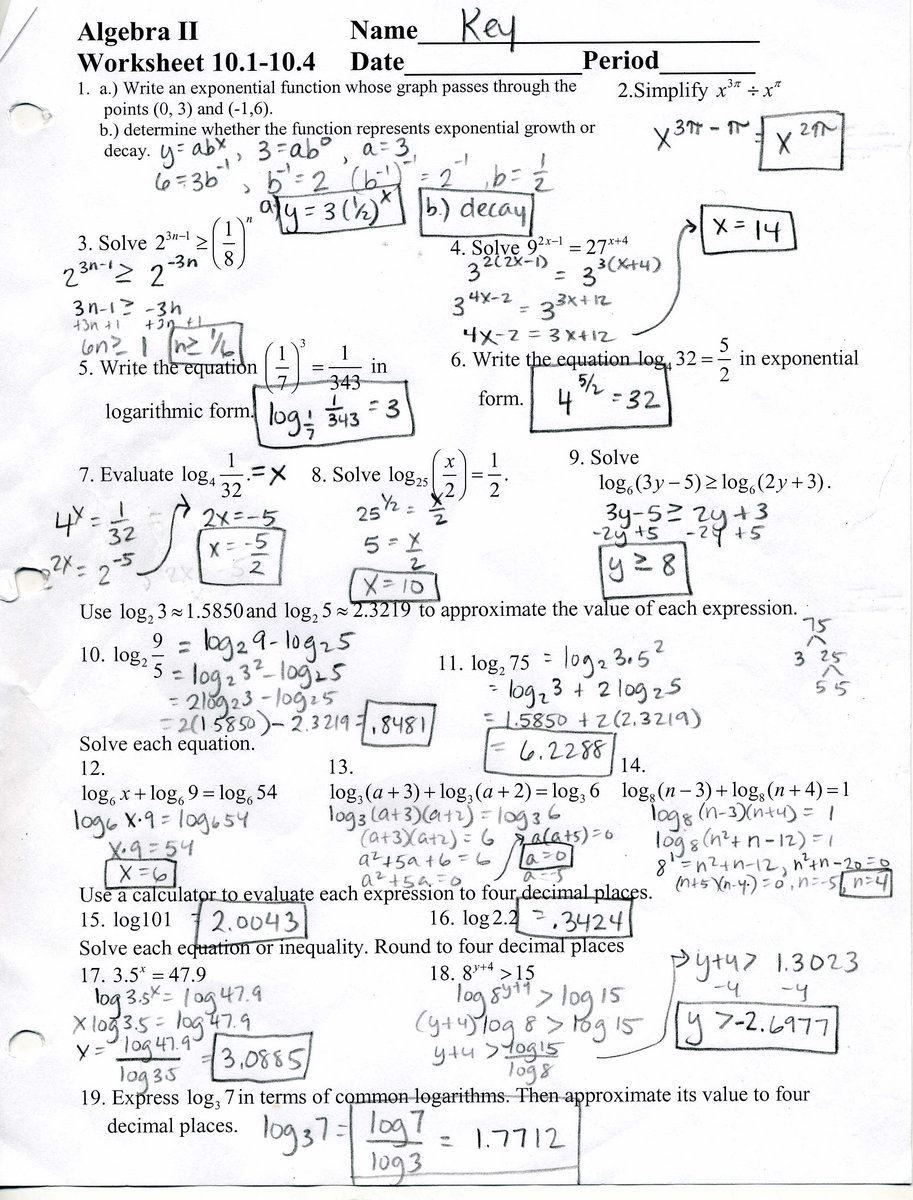 Algebra II Name Key
Worksheet 10.1-10.4 Date Period
1. a.) Write an exponential function whose graph passes through the
points (0, 3) and (-1,6).
b.) determine whether the function represents exponential growth or
decay. y=abˣ, 3=ab⁰, a=3
6=3b⁻¹, b⁻¹=2 (b⁻¹)⁻¹=2⁻¹, b=1/2
a) y=3(1/2)ˣ b.) decay
2.Simplify x^(3π) ÷ x^π
x^(3π-π) = x^(2π)
3. Solve 2^(3n-1) ≥ (1/8)^n
2^(3n-1) ≥ 2^(-3n)
3n-1 ≥ -3n
+3n +1 +3n +1
6n ≥ 1 n ≥ 1/6
4. Solve 9^(2x-1) = 27^(x+4)
3^(2(2x-1)) = 3^(3(x+4))
3^(4x-2) = 3^(3x+12)
4x-2 = 3x+12
x = 14
5. Write the equation (1/7)³ = 1/343 in
logarithmic form. log_(1/7) 1/343 = 3
6. Write the equation log₄ 32 = 5/2 in exponential
form. 4^(5/2) = 32
7. Evaluate log₄ 1/32. = x
4ˣ = 1/32
2^(2x) = 2⁻⁵
2x = -5
x = -5/2
8. Solve log₂₅ (x/2) = 1/2.
25^(1/2) = x/2
5 = x/2
x = 10
9. Solve
log₆(3y-5) ≥ log₆(2y+3).
3y-5 ≥ 2y+3
-2y +5 -2y +5
y ≥ 8
Use log₂ 3 ≈ 1.5850 and log₂ 5 ≈ 2.3219 to approximate the value of each expression.
10. log₂ 9/5 = log₂9 - log₂5
= log₂3² - log₂5
= 2log₂3 - log₂5
= 2(1.5850) - 2.3219 = .8481
11. log₂ 75 = log₂ 3·5²
= log₂3 + 2 log₂5
= 1.5850 + 2(2.3219)
= 6.2288
75
3 25
5 5
Solve each equation.
12.
log₆ x + log₆ 9 = log₆ 54
log₆ x·9 = log₆54
x·9 = 54
x = 6
13.
log₃(a+3) + log₃(a+2) = log₃ 6
log₃(a+3)(a+2) = log₃6
(a+3)(a+2) = 6
a²+5a+6 = 6
a²+5a = 0
a(a+5)=0
a=0
a=-5
14.
log₈(n-3) + log₈(n+4) = 1
log₈(n-3)(n+4) = 1
log₈(n²+n-12) = 1
8¹=n²+n-12, n²+n-20=0
(n+5)(n-4)=0, n=-5, n=4
Use a calculator to evaluate each expression to four decimal places.
15. log101 = 2.0043
16. log2.2 = .3424
Solve each equation or inequality. Round to four decimal places
17. 3.5ˣ = 47.9
log 3.5ˣ = log 47.9
x log 3.5 = log 47.9
x = log 47.9/log 3.5 = 3.0885
18. 8^(y+4) > 15
log 8^(y+4) > log 15
(y+4) log 8 > log 15
y+4 > log15/log8
y+4 > 1.3023
-4 -4
y > -2.6977
19. Express log₃ 7 in terms of common logarithms. Then approximate its value to four
decimal places. log₃7 = log7/log3 = 1.7712